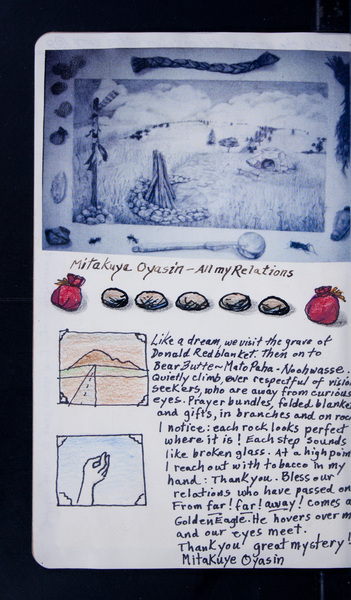 Mitakuya Oyasin - All my Relations
Like a dream, we visit the grave of
Donald Redblanket. Then on to
Bear Butte ~ Mato Paha - Noahwasse..
Quietly climb, ever respectful of vision
seekers, who are away from curious
eyes. Prayer bundles, folded blankets
and gifts, in branches and on rocks
I notice: each rock looks perfect
where it is! Each step sounds
like broken glass. At a high point
I reach out with tobacco in my
hand: Thank you. Bless our
relations who have passed on
From far! far! away! comes a
Golden Eagle. He hovers over me
and our eyes meet.
Thank you great mystery!
Mitakuye Oyasin